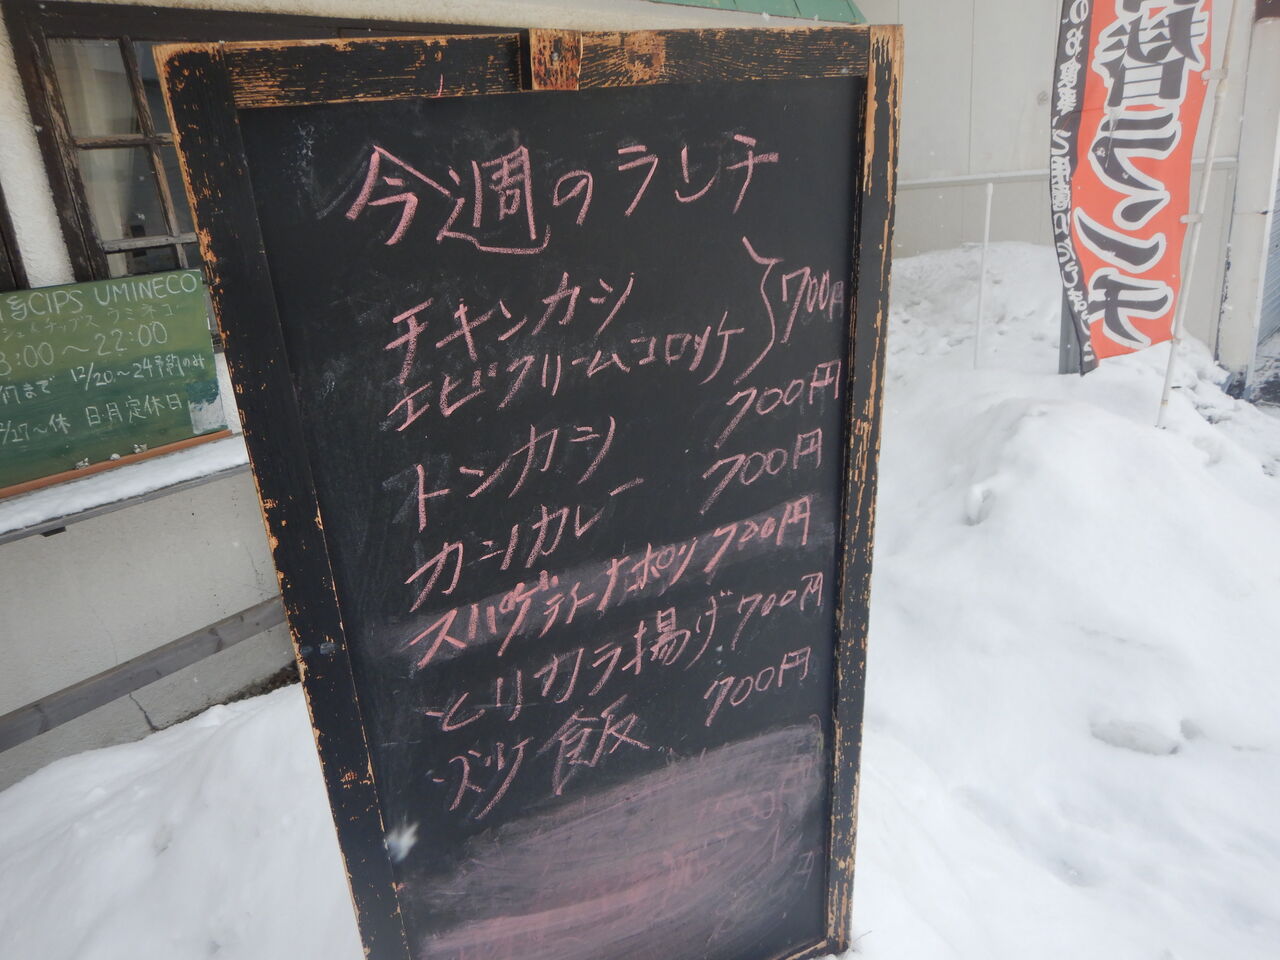 今週のランチ
チキンカツ
エビクリームコロッケ
700円
トンカツ 700円
カツカレー 700円
スパゲティナポリ 700円
とりカラ揚げ 700円
炒飯 700円
CIPS UMINECO
8:00〜22:00
12/20〜24予約のみ
27〜休 日・月定休日
ランチ